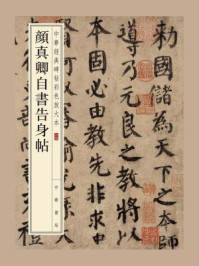 勑國儲為天下之本師
導乃元良之教將以
本固必由教先非求
中華經典碑帖彩色放大本
顏真卿自書告身帖
中華書局